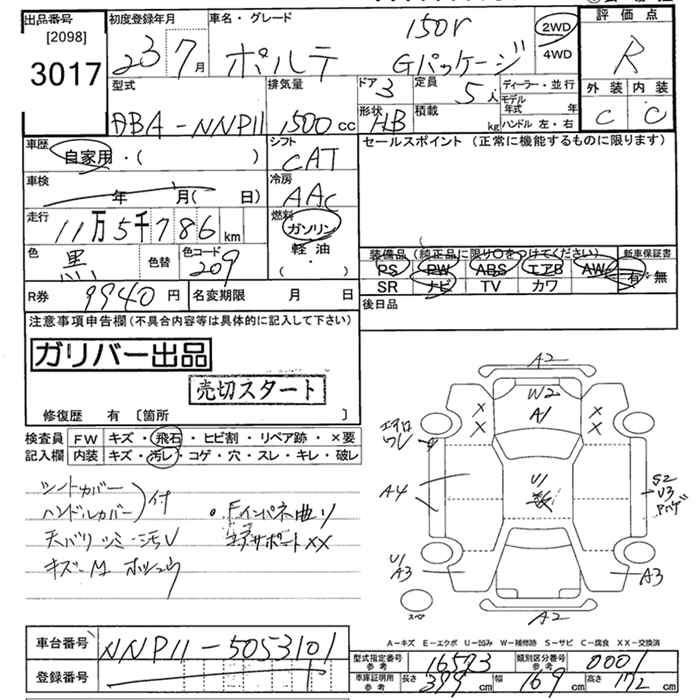 出品番号 初度登録年月 車名・グレード 150r 2WD 評価点
[2098] 23 7月 ポルテ Gパッケージ 4WD R
3017 型式 排気量 ドア 3 定員 5人 ディーラー・並行 外装 内装
DBA-NNP11 1500cc 形状 HB 積載 kg モデル年式 年 C C
ハンドル 左・右
車歴 シフト セールスポイント (正常に機能するものに限ります)
自家用・( ) CAT
車検 冷房
年 月( 日) AAC
走行 燃料
11万5千786km ガソリン
色 黒 色替 色コード 209 軽油 装備品 (純正品に限り○をつけてください) 新車保証書
・( ) PS PW ABS エアB AW 有・無
R券 9940円 名変期限 月 日 SR ナビ TV カワ
後日品
注意事項申告欄(不具合内容等は具体的に記入して下さい)
ガリバー出品
売切スタート
修復歴 有 [箇所 ]
検査員 FW キズ・飛石・ヒビ割・リペア跡・×要
記入欄 内装 キズ・汚レ・コゲ・穴・スレ・キレ・破レ
シートカバー
ハンドルカバー 付
天バリ シミ・汚V
・Fインパネ曲リ
コアサポートXX
A2
W2
A1
U1
A4
S2
U3
U1
A3
A3
A2
スペア
A-キズ E-エクボ U-凹み W-補修跡 S-サビ C-腐食 XX-交換済
車台番号 NNP11-5053101
登録番号
型式指定番号 参考 16573 類別区分番号 参考 0001
車庫証明用 参考 長さ 399cm 幅 169cm 高さ 172cm